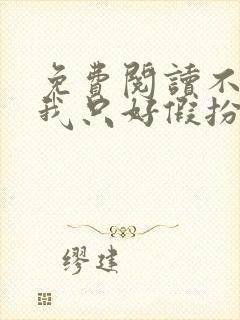 免費閱讀不
我只好假扮
缪建